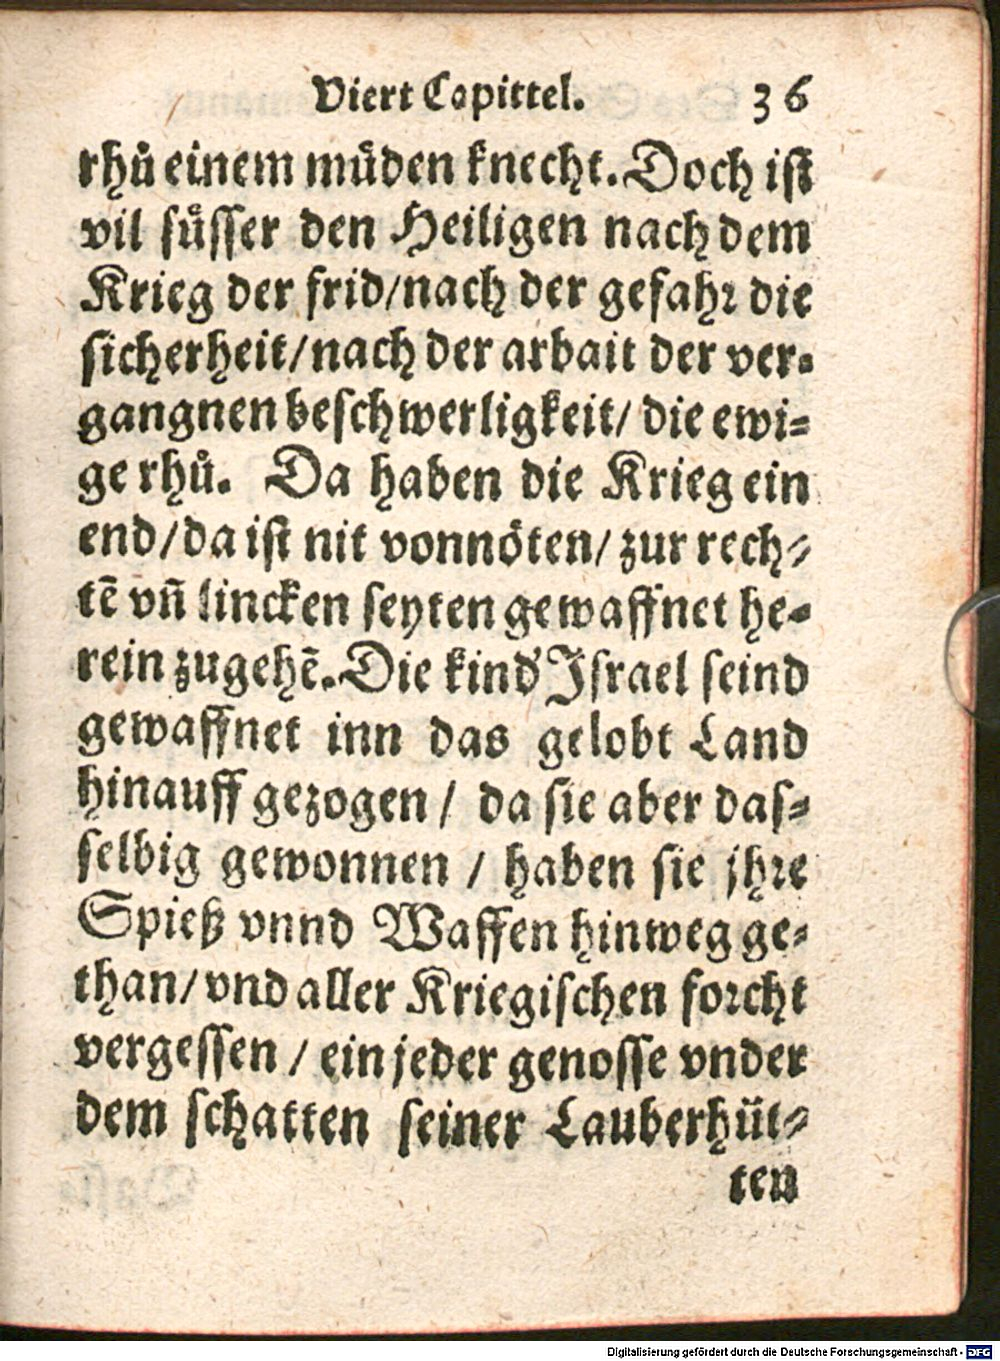 Viert Capittel. 36
rhů einem můden knecht. Doch ist
vil sůsser den Heiligen nach dem
Krieg der frid/nach der gefahr die
sicherheit/nach der arbait der ver-
gangnen beschwerligkeit/ die ewi-
ge rhů. Da haben die Krieg ein
end/da ist nit vonnöten/ zur rech-
tē vñ lincken seyten gewaffnet he-
rein zugehē. Die kind' Israel seind
gewaffnet inn das gelobt Land
hinauff gezogen / da sie aber das-
selbig gewonnen / haben sie jhre
Spieß vnnd Waffen hinweg ge-
than/vnd aller Kriegischen forcht
vergessen / ein jeder genosse vnder
dem schatten seiner Lauberhüt-
ten
Digitalisierung gefördert durch die Deutsche Forschungsgemeinschaft - DFG